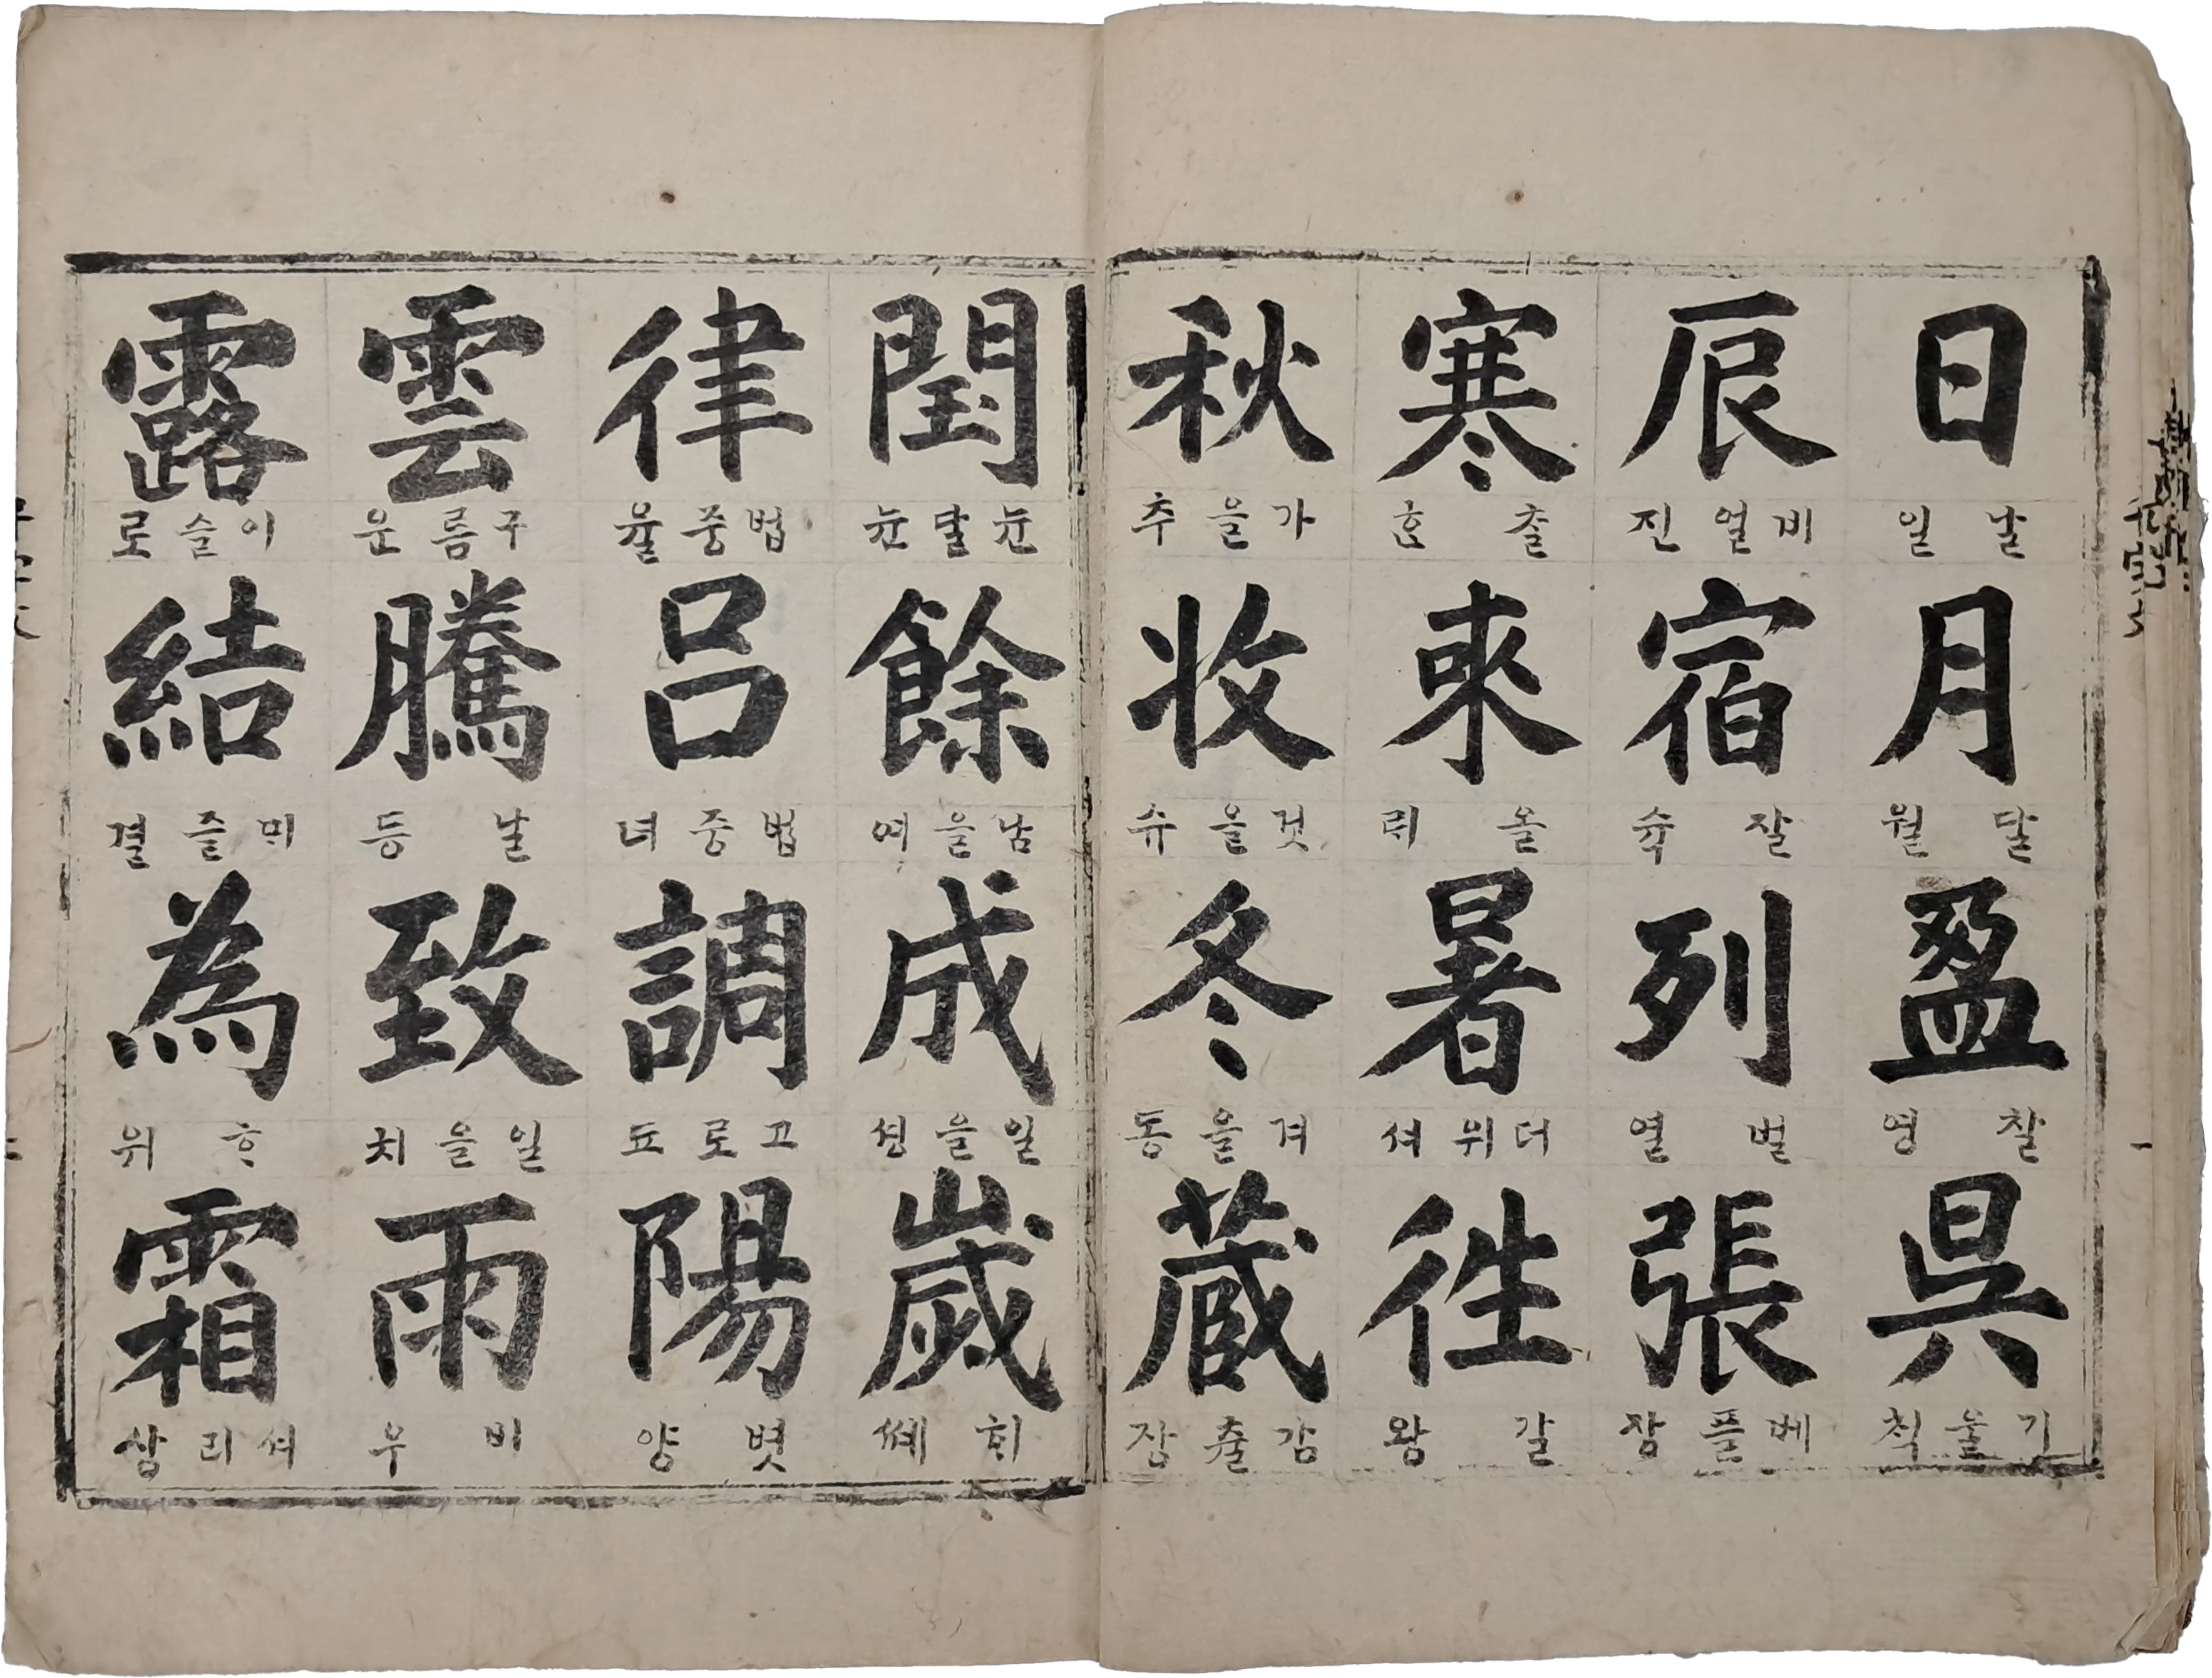 日 날 일 月 달 월 盈 찰 영 昃 기울 칙
辰 비얼 진 宿 잘 슉 列 벌 열 張 베플 장
寒 촐 ᄒᆞᆫ 來 올 ᄅᆡ 暑 더위 셔 徃 갈 왕
秋 가을 추 收 것을 슈 冬 겨을 동 藏 감출 장
閏 뉸달 뉸 餘 남을 여 成 일을 션 歲 ᄒᆡ 셰
律 법중 율 呂 법중 녀 調 고로 됴 陽 볏 양
雲 구름 운 騰 날 등 致 일을 치 雨 비 우
露 이슬 로 結 ᄆᆡ즐 결 為 ᄒᆞ 위 霜 셔리 상